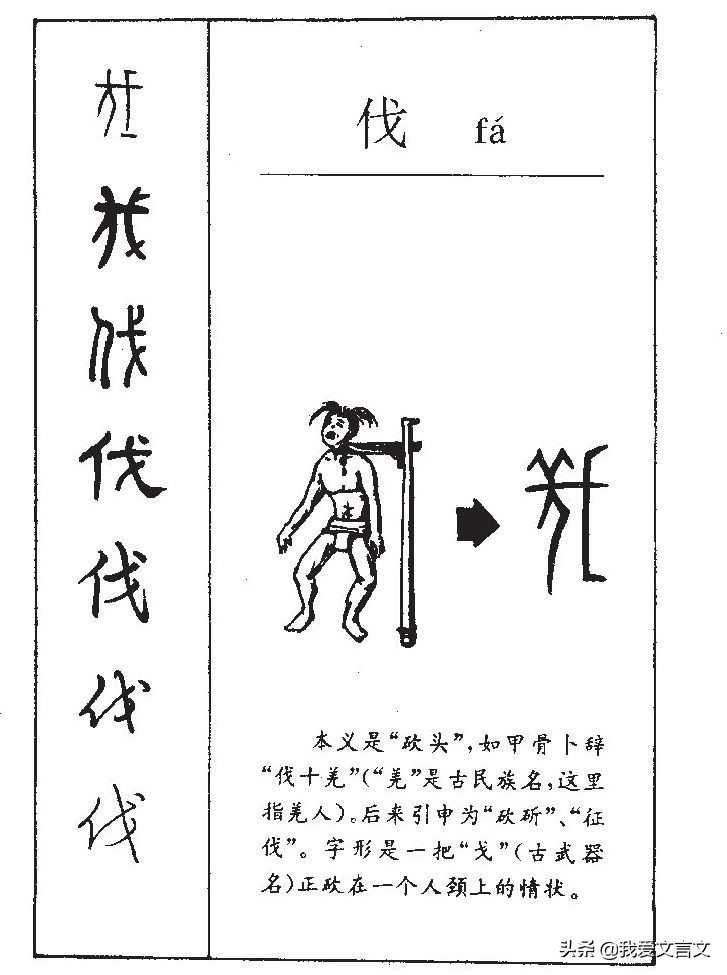 伐 fá
伐
伐
伐
伐
本义是“砍头”,如甲骨卜辞
“伐十羌”(“羌”是古民族名,这里
指羌人)。后来引申为“砍斫”、“征
伐”。字形是一把“戈”(古武器
名)正砍在一个人颈上的情状。
头条 @我爱文言文